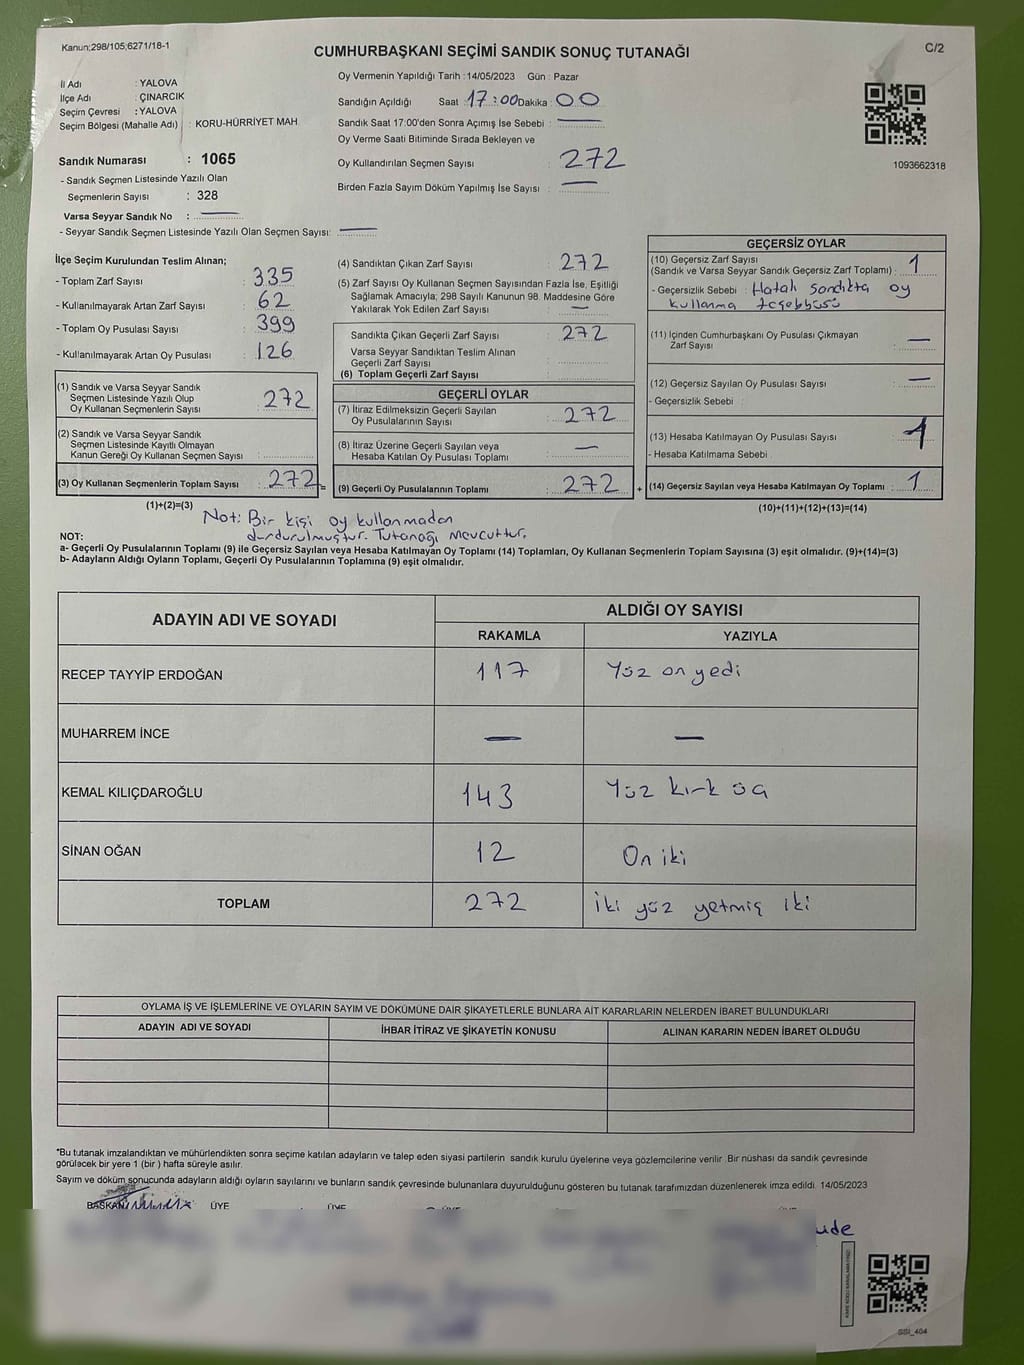 Kanun;298/105;6271/18-1
CUMHURBAŞKANI SEÇİMİ SANDIK SONUÇ TUTANAĞI
C/2
İl Adı : YALOVA
İlçe Adı : ÇINARCIK
Seçim Çevresi : YALOVA
Seçim Bölgesi (Mahalle Adı) : KORU-HÜRRİYET MAH.
Sandık Numarası : 1065
- Sandık Seçmen Listesinde Yazılı Olan
Seçmenlerin Sayısı : 328
Varsa Seyyar Sandık No : —
- Seyyar Sandık Seçmen Listesinde Yazılı Olan Seçmen Sayısı: —
Oy Vermenin Yapıldığı Tarih :14/05/2023 Gün : Pazar
Sandığın Açıldığı Saat 17:00 Dakika : 00
Sandık Saat 17:00'den Sonra Açımış İse Sebebi : —
Oy Verme Saati Bitiminde Sırada Bekleyen ve
Oy Kullandırılan Seçmen Sayısı : 272
Birden Fazla Sayım Döküm Yapılmış İse Sayısı : —
1093662318
İlçe Seçim Kurulundan Teslim Alınan;
- Toplam Zarf Sayısı : 335
- Kullanılmayarak Artan Zarf Sayısı : 62
- Toplam Oy Pusulası Sayısı : 399
- Kullanılmayarak Artan Oy Pusulası : 126
(1) Sandık ve Varsa Seyyar Sandık
Seçmen Listesinde Yazılı Olup
Oy Kullanan Seçmenlerin Sayısı : 272
(2) Sandık ve Varsa Seyyar Sandık
Seçmen Listesinde Kayıtlı Olmayan
Kanun Gereği Oy Kullanan Seçmen Sayısı :
(3) Oy Kullanan Seçmenlerin Toplam Sayısı : 272 =
(1)+(2)=(3)
(4) Sandıktan Çıkan Zarf Sayısı : 272
(5) Zarf Sayısı Oy Kullanan Seçmen Sayısından Fazla İse, Eşitliği
Sağlamak Amacıyla; 298 Sayılı Kanunun 98. Maddesine Göre
Yakılarak Yok Edilen Zarf Sayısı : —
Sandıkta Çıkan Geçerli Zarf Sayısı : 272
Varsa Seyyar Sandıktan Teslim Alınan
Geçerli Zarf Sayısı :
(6) Toplam Geçerli Zarf Sayısı :
GEÇERLİ OYLAR
(7) İtiraz Edilmeksizin Geçerli Sayılan
Oy Pusulalarının Sayısı : 272
(8) İtiraz Üzerine Geçerli Sayılan veya
Hesaba Katılan Oy Pusulası Toplamı : —
(9) Geçerli Oy Pusulalarının Toplamı : 272 +
GEÇERSİZ OYLAR
(10) Geçersiz Zarf Sayısı
(Sandık ve Varsa Seyyar Sandık Geçersiz Zarf Toplamı) : 1
- Geçersizlik Sebebi : Hatalı sandıkta oy
kullanma teşebbüsü
(11) İçinden Cumhurbaşkanı Oy Pusulası Çıkmayan
Zarf Sayısı : —
(12) Geçersiz Sayılan Oy Pusulası Sayısı : —
- Geçersizlik Sebebi :
(13) Hesaba Katılmayan Oy Pusulası Sayısı : 1
- Hesaba Katılmama Sebebi :
(14) Geçersiz Sayılan veya Hesaba Katılmayan Oy Toplamı : 1
(10)+(11)+(12)+(13)=(14)
Not: Bir kişi oy kullanmadan
durdurulmuştur. Tutanağı mevcuttur.
NOT:
a- Geçerli Oy Pusulalarının Toplamı (9) ile Geçersiz Sayılan veya Hesaba Katılmayan Oy Toplamı (14) Toplamları, Oy Kullanan Seçmenlerin Toplam Sayısına (3) eşit olmalıdır. (9)+(14)=(3)
b- Adayların Aldığı Oyların Toplamı, Geçerli Oy Pusulalarının Toplamına (9) eşit olmalıdır.
ADAYIN ADI VE SOYADI
ALDIĞI OY SAYISI
RAKAMLA YAZIYLA
RECEP TAYYİP ERDOĞAN 117 Yüz on yedi
MUHARREM İNCE — —
KEMAL KILIÇDAROĞLU 143 Yüz kırk üç
SİNAN OĞAN 12 On iki
TOPLAM 272 İki yüz yetmiş iki
OYLAMA İŞ VE İŞLEMLERİNE VE OYLARIN SAYIM VE DÖKÜMÜNE DAİR ŞİKAYETLERLE BUNLARA AİT KARARLARIN NELERDEN İBARET BULUNDUKLARI
ADAYIN ADI VE SOYADI İHBAR İTİRAZ VE ŞİKAYETİN KONUSU ALINAN KARARIN NEDEN İBARET OLDUĞU
*Bu tutanak imzalandıktan ve mühürlendikten sonra seçime katılan adayların ve talep eden siyasi partilerin sandık kurulu üyelerine veya gözlemcilerine verilir. Bir nüshası da sandık çevresinde
görülecek bir yere 1 (bir ) hafta süreyle asılır.
Sayım ve döküm sonucunda adayların aldığı oyların sayılarını ve bunların sandık çevresinde bulunanlara duyurulduğunu gösteren bu tutanak tarafımızdan düzenlenerek imza edildi. 14/05/2023
BAŞKAN ÜYE ÜYE
SSİ_404